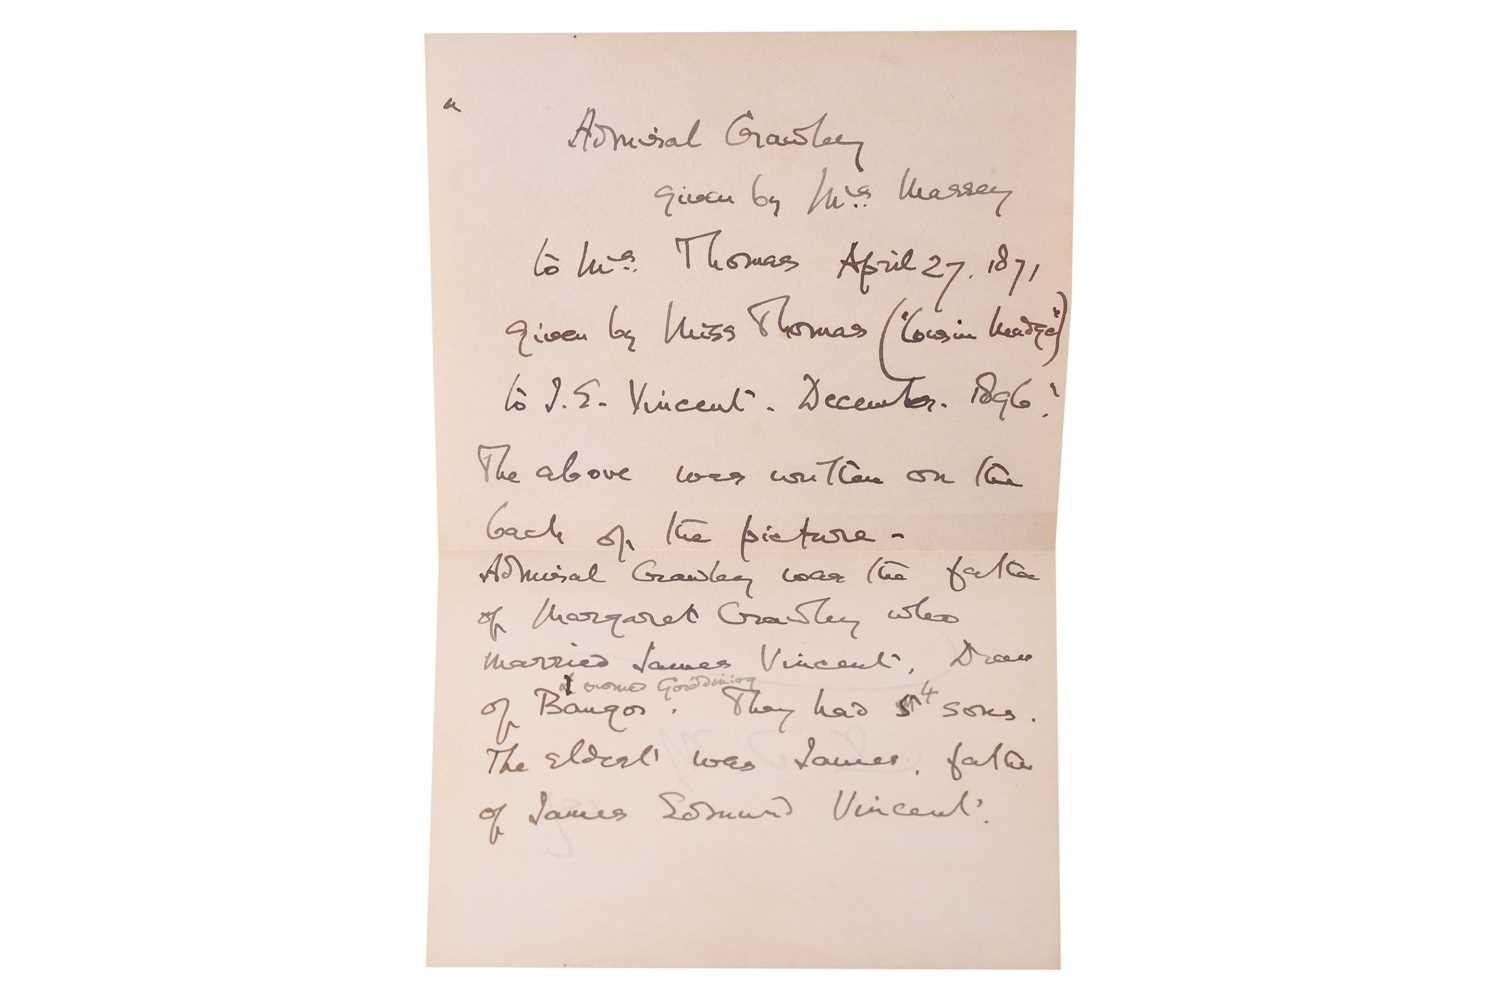 "
Admiral Crawley
given by Mrs. Massey
to Mrs. Thomas April 27. 1871
given by Miss Thomas ("Cousin Madge")
to J. E. Vincent. December. 1896."
The above was written on the
back of the picture -
Admiral Crawley was the father
of Margaret Crawley who
married James Vincent, Dean
of Bangor. They had 4 sons.
The eldest was James, father
of James Edmund Vincent.